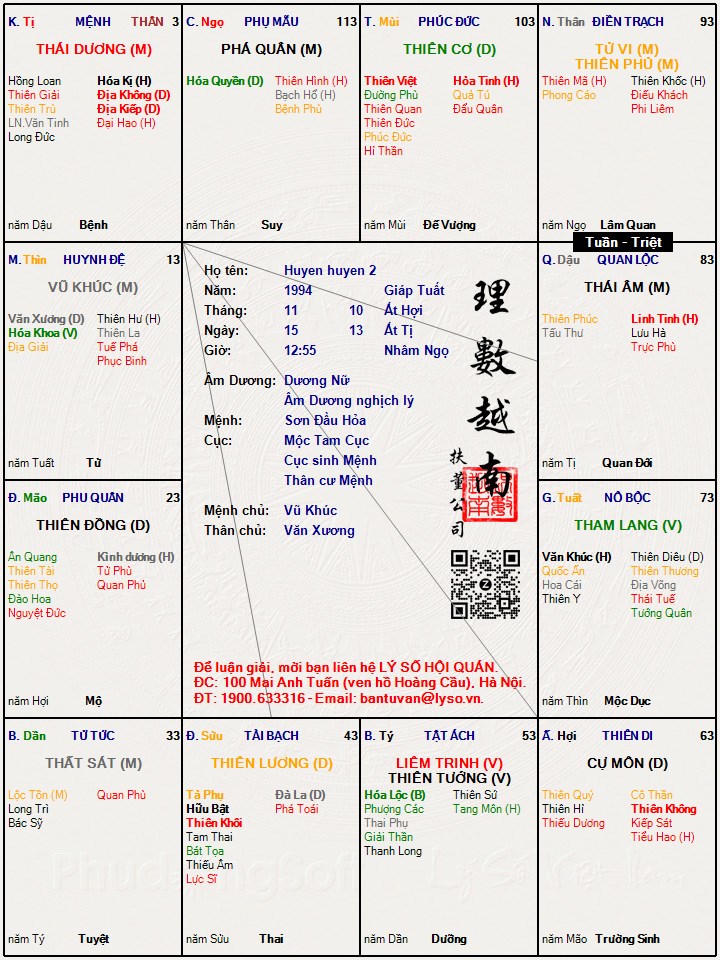 K. Tị MỆNH THÂN 3
THÁI DƯƠNG (M)
Hồng Loan Hóa Kị (H)
Thiên Giải Địa Không (D)
Thiên Trù Địa Kiếp (D)
LN.Văn Tinh Đại Hao (H)
Long Đức
năm Dậu Bệnh
C. Ngọ PHỤ MẪU 113
PHÁ QUÂN (M)
Hóa Quyền (D) Thiên Hình (H)
Bạch Hổ (H)
Bệnh Phù
năm Thân Suy
T. Mùi PHÚC ĐỨC 103
THIÊN CƠ (D)
Thiên Việt Hỏa Tinh (H)
Đường Phù Quả Tú
Thiên Quan Đẩu Quân
Thiên Đức
Phúc Đức
Hỉ Thần
năm Mùi Đế Vượng
N. Thân ĐIỀN TRẠCH 93
TỬ VI (M)
THIÊN PHỦ (M)
Thiên Mã (H) Thiên Khốc (H)
Phong Cáo Điếu Khách
Phi Liêm
năm Ngọ Lâm Quan
Tuần - Triệt
M. Thìn HUYNH ĐỆ 13
VŨ KHÚC (M)
Văn Xương (D) Thiên Hư (H)
Hóa Khoa (V) Thiên La
Địa Giải Tuế Phá
Phục Binh
năm Tuất Tử
Họ tên: Huyen huyen 2
Năm: 1994 Giáp Tuất
Tháng: 11 10 Ất Hợi
Ngày: 15 13 Ất Tị
Giờ: 12:55 Nhâm Ngọ
Âm Dương: Dương Nữ
Âm Dương nghịch lý
Mệnh: Sơn Đầu Hỏa
Cục: Mộc Tam Cục
Cục sinh Mệnh
Thân cư Mệnh
Mệnh chủ: Vũ Khúc
Thân chủ: Văn Xương
理數越南
扶董公司
Để luận giải, mời bạn liên hệ LÝ SỐ HỘI QUÁN.
ĐC: 100 Mai Anh Tuấn (ven hồ Hoàng Cầu), Hà Nội.
ĐT: 1900.633316 - Email: bantuvan@lyso.vn.
Q. Dậu QUAN LỘC 83
THÁI ÂM (M)
Thiên Phúc Linh Tinh (H)
Tấu Thư Lưu Hà
Trực Phù
năm Tị Quan Đới
Đ. Mão PHU QUÂN 23
THIÊN ĐỒNG (D)
Ân Quang Kình dương (H)
Thiên Tài Tử Phù
Thiên Thọ Quan Phủ
Đào Hoa
Nguyệt Đức
năm Hợi Mộ
G. Tuất NÔ BỘC 73
THAM LANG (V)
Văn Khúc (H) Thiên Diêu (D)
Quốc Ấn Thiên Thương
Hoa Cái Địa Võng
Thiên Y Thái Tuế
Tướng Quân
năm Thìn Mộc Dục
B. Dần TỬ TỨC 33
THẤT SÁT (M)
Lộc Tồn (M) Quan Phù
Long Trì
Bác Sỹ
năm Tý Tuyệt
Đ. Sửu TÀI BẠCH 43
THIÊN LƯƠNG (D)
Tả Phụ Đà La (D)
Hữu Bật Phá Toái
Thiên Khôi
Tam Thai
Bát Tọa
Thiếu Âm
Lực Sĩ
năm Sửu Thai
B. Tý TẬT ÁCH 53
LIÊM TRINH (V)
THIÊN TƯỚNG (V)
Hóa Lộc (B) Thiên Sứ
Phượng Các Tang Môn (H)
Thai Phụ
Giải Thần
Thanh Long
năm Dần Dưỡng
Ấ. Hợi THIÊN DI 63
CỰ MÔN (D)
Thiên Quý Cô Thần
Thiên Hỉ Thiên Không
Thiếu Dương Kiếp Sát
Tiểu Hao (H)
năm Mão Trường Sinh